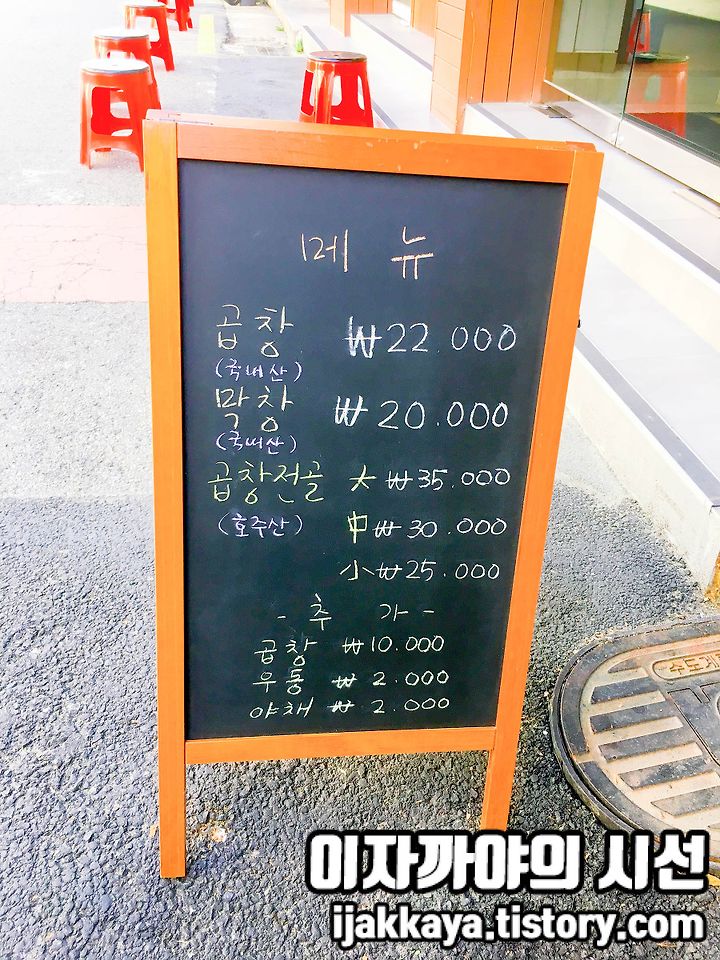 메뉴
곱창 ₩22.000
(국내산)
막창 ₩20.000
(국내산)
곱창전골 大 ₩35.000
(호주산) 中 ₩30.000
小 ₩25.000
- 추 가 -
곱창 ₩10.000
우동 ₩ 2.000
야채 ₩ 2.000
이자까야의 시선
ijakkaya.tistory.com